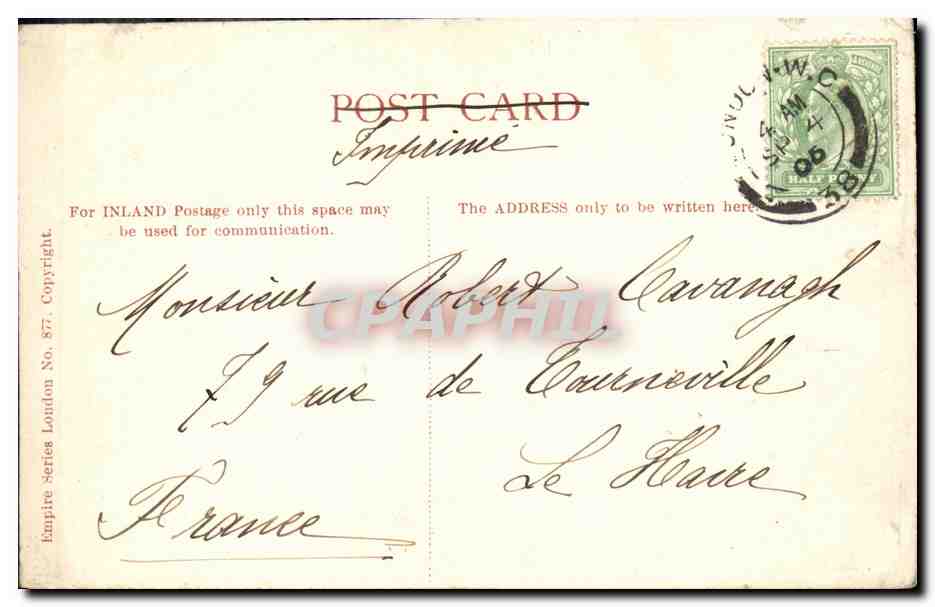 POST CARD
Imprimé
For INLAND Postage only this space may
be used for communication.
The ADDRESS only to be written here.
Monsieur Robert Cavanagh
79 rue de Tourneville
Le Havre
France
Empire Series London No. 877. Copyright.
LONDON. W.C
4 AM
SP 4
06
38
HALF PENNY
CPAPHIL